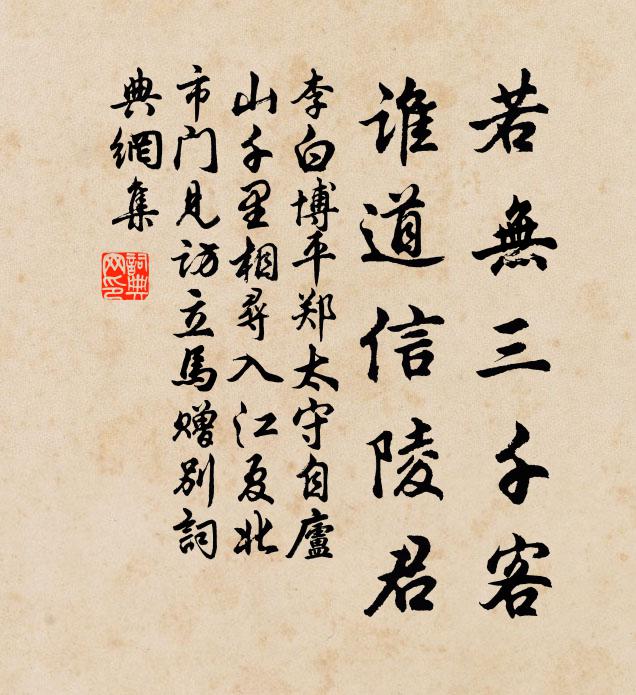 若無三千客
誰道信陵君
李白博平郑太守自廬
山千里相尋入江夏北
市门見访立馬赠别詞
典網集
詞典
网印